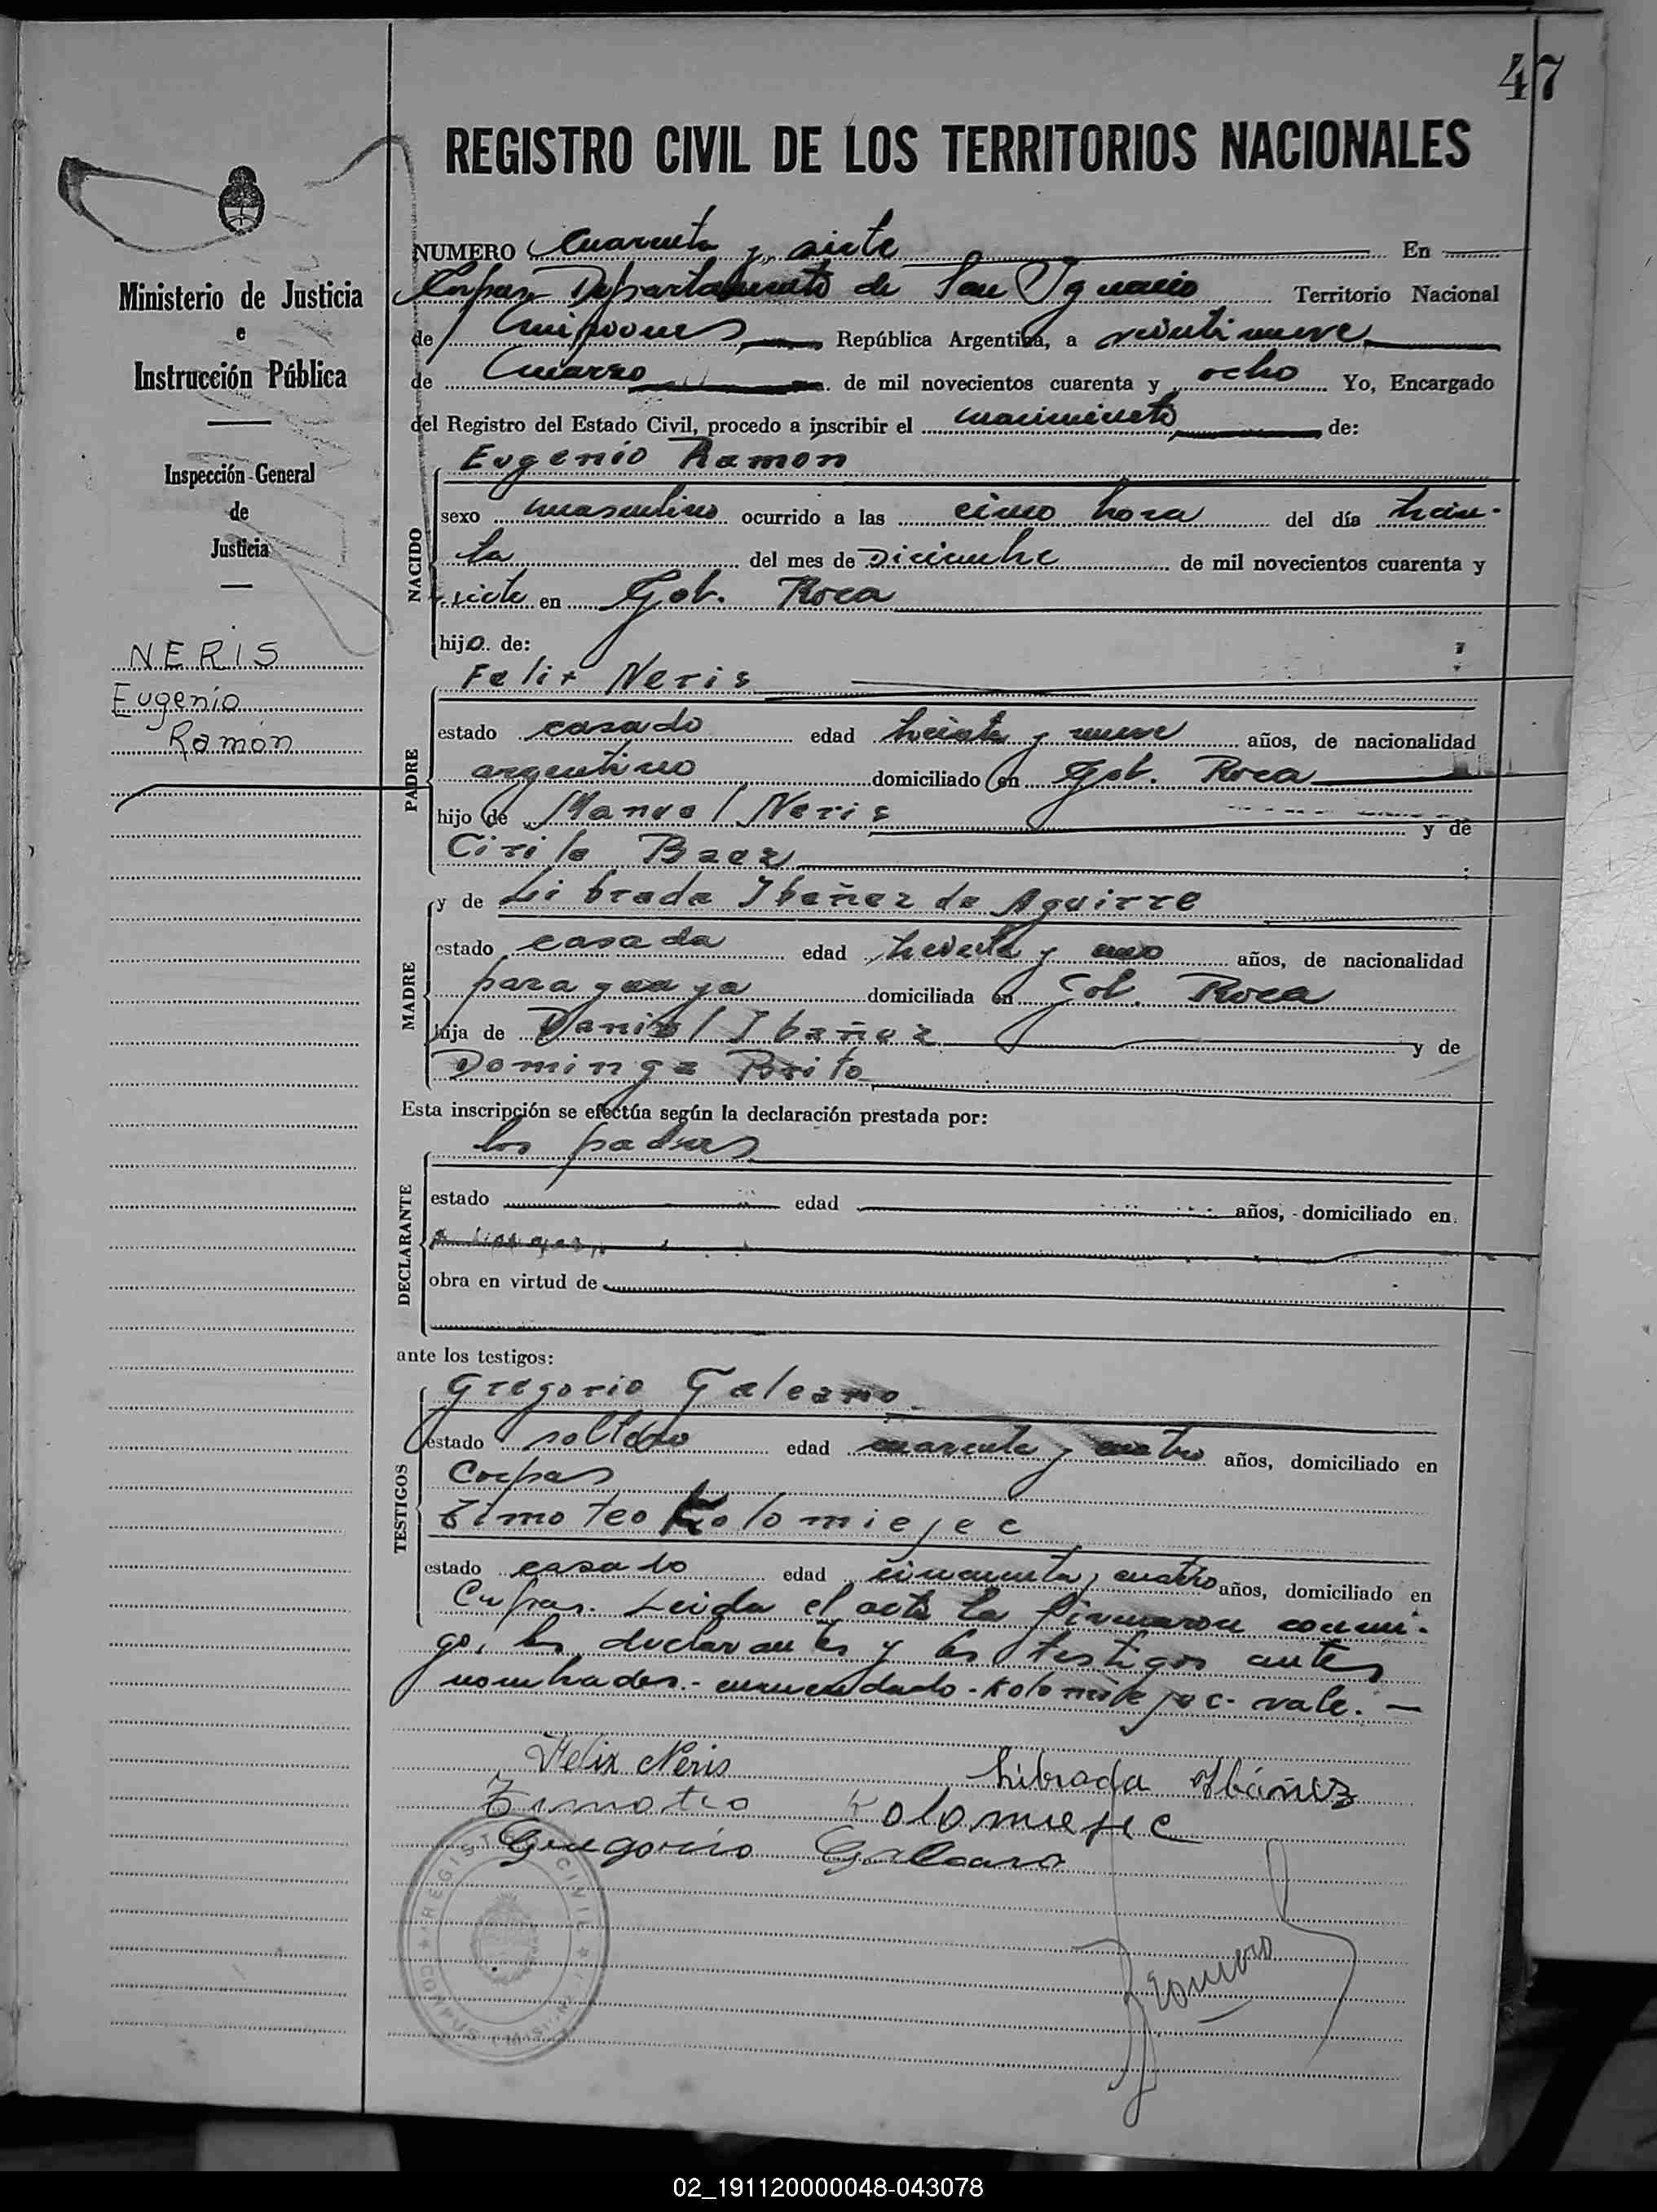 47
REGISTRO CIVIL DE LOS TERRITORIOS NACIONALES
Ministerio de Justicia
e
Instrucción Pública
Inspección General
de
Justicia
NERIS
Eugenio
Ramón
NUMERO Cuarenta y siete En
Corpus Departamento de San Ignacio Territorio Nacional
de Misiones República Argentina, a veintinueve
de marzo de mil novecientos cuarenta y ocho Yo, Encargado
del Registro del Estado Civil, procedo a inscribir el nacimiento de:
Eugenio Ramon
NACIDO
sexo masculino ocurrido a las cinco hora del día trein-
ta del mes de Diciembre de mil novecientos cuarenta y
siete en Gob. Roca
hijo de:
PADRE
Felix Neris
estado casado edad treinta y nueve años, de nacionalidad
argentino domiciliado en Gob. Roca
hijo de Manuel Neris y de
Cirila Baez
MADRE
y de Librada Ibañez de Aguirre
estado casada edad treinta y uno años, de nacionalidad
paraguaya domiciliada en Gob. Roca
hija de Daniel Ibañez y de
Dominga Brito
Esta inscripción se efectúa según la declaración prestada por:
DECLARANTE
los padres
estado edad años, domiciliado en
obra en virtud de
ante los testigos:
TESTIGOS
Gregorio Galeano
estado soltero edad cuarenta y cuatro años, domiciliado en
Corpus
Timoteo Kolomiejec
estado casado edad cincuenta y cuatro años, domiciliado en
Corpus. Leida el acta la firmaron conmi-
go, los declarantes y los testigos antes
nombrados.- enmendado - Kolomiejec - vale. -
Felix Neris Librada Ibáñez
Timoteo Kolomiejec
Gregorio Galeano
REGISTRO CIVIL
CORPUS (MISIONES)
02_191120000048-043078